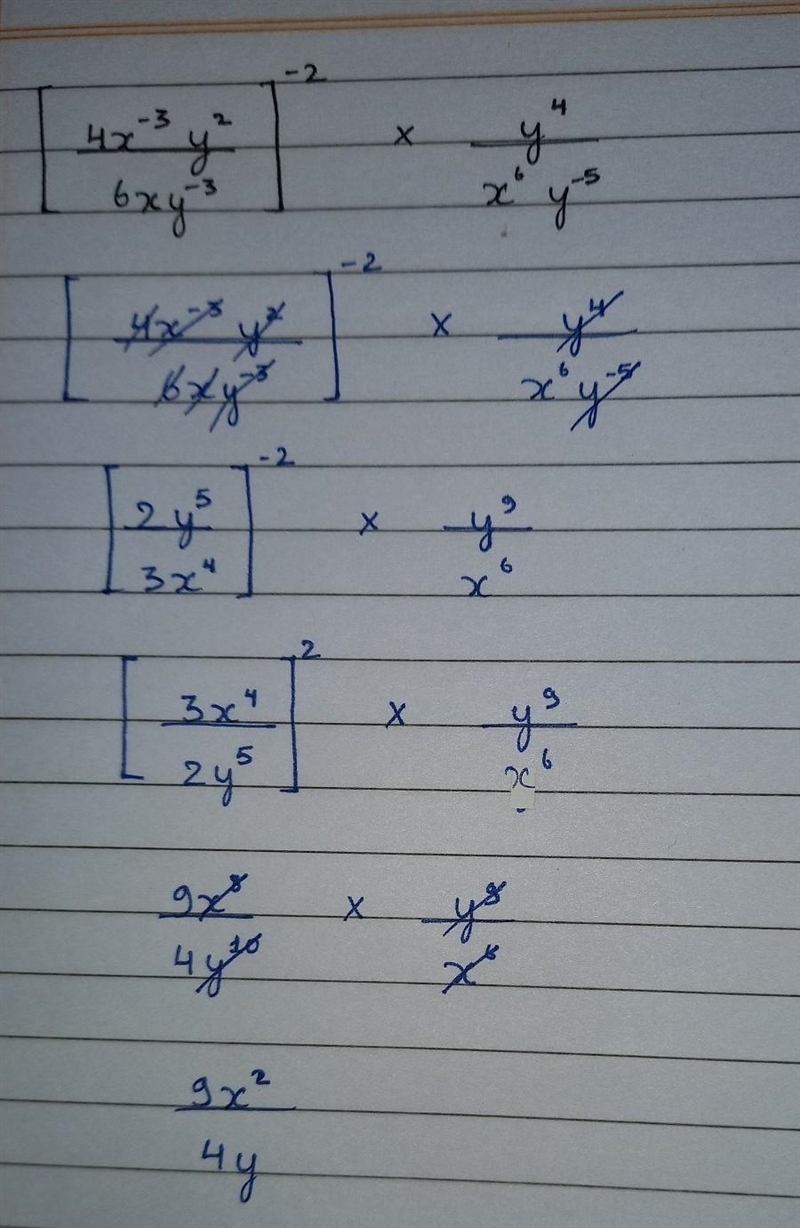 [4x⁻³ y² / 6xy⁻³]⁻² × y⁴ / x⁶ y⁻⁵
[4x⁻³ y² / 6xy⁻³]⁻² × y⁴ / x⁶ y⁻⁵
[2y⁵ / 3x⁴]⁻² × y⁹ / x⁶
[3x⁴ / 2y⁵]² × y⁹ / x⁶
9x⁸ / 4y¹⁰ × y⁹ / x⁶
9x² / 4y